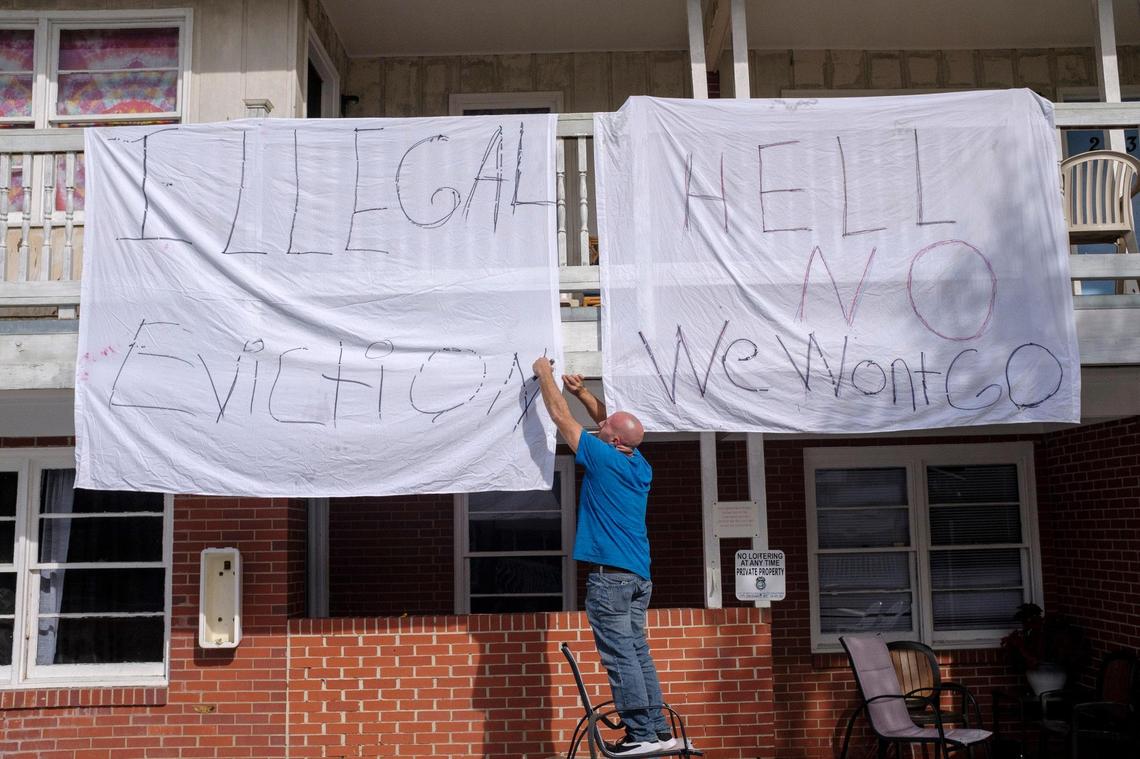 ILLEGAL
EvictioN
HELL
NO
We WontGO
2 3
NO LOITERING
AT ANY TIME
PRIVATE PROPERTY